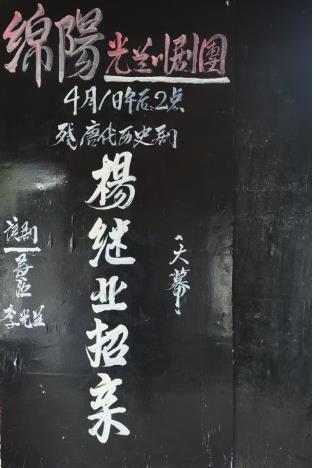 绵陽光兰川剧團
4月1日午后2点
残唐代历史剧
楊继业招亲
大幕
李光兰